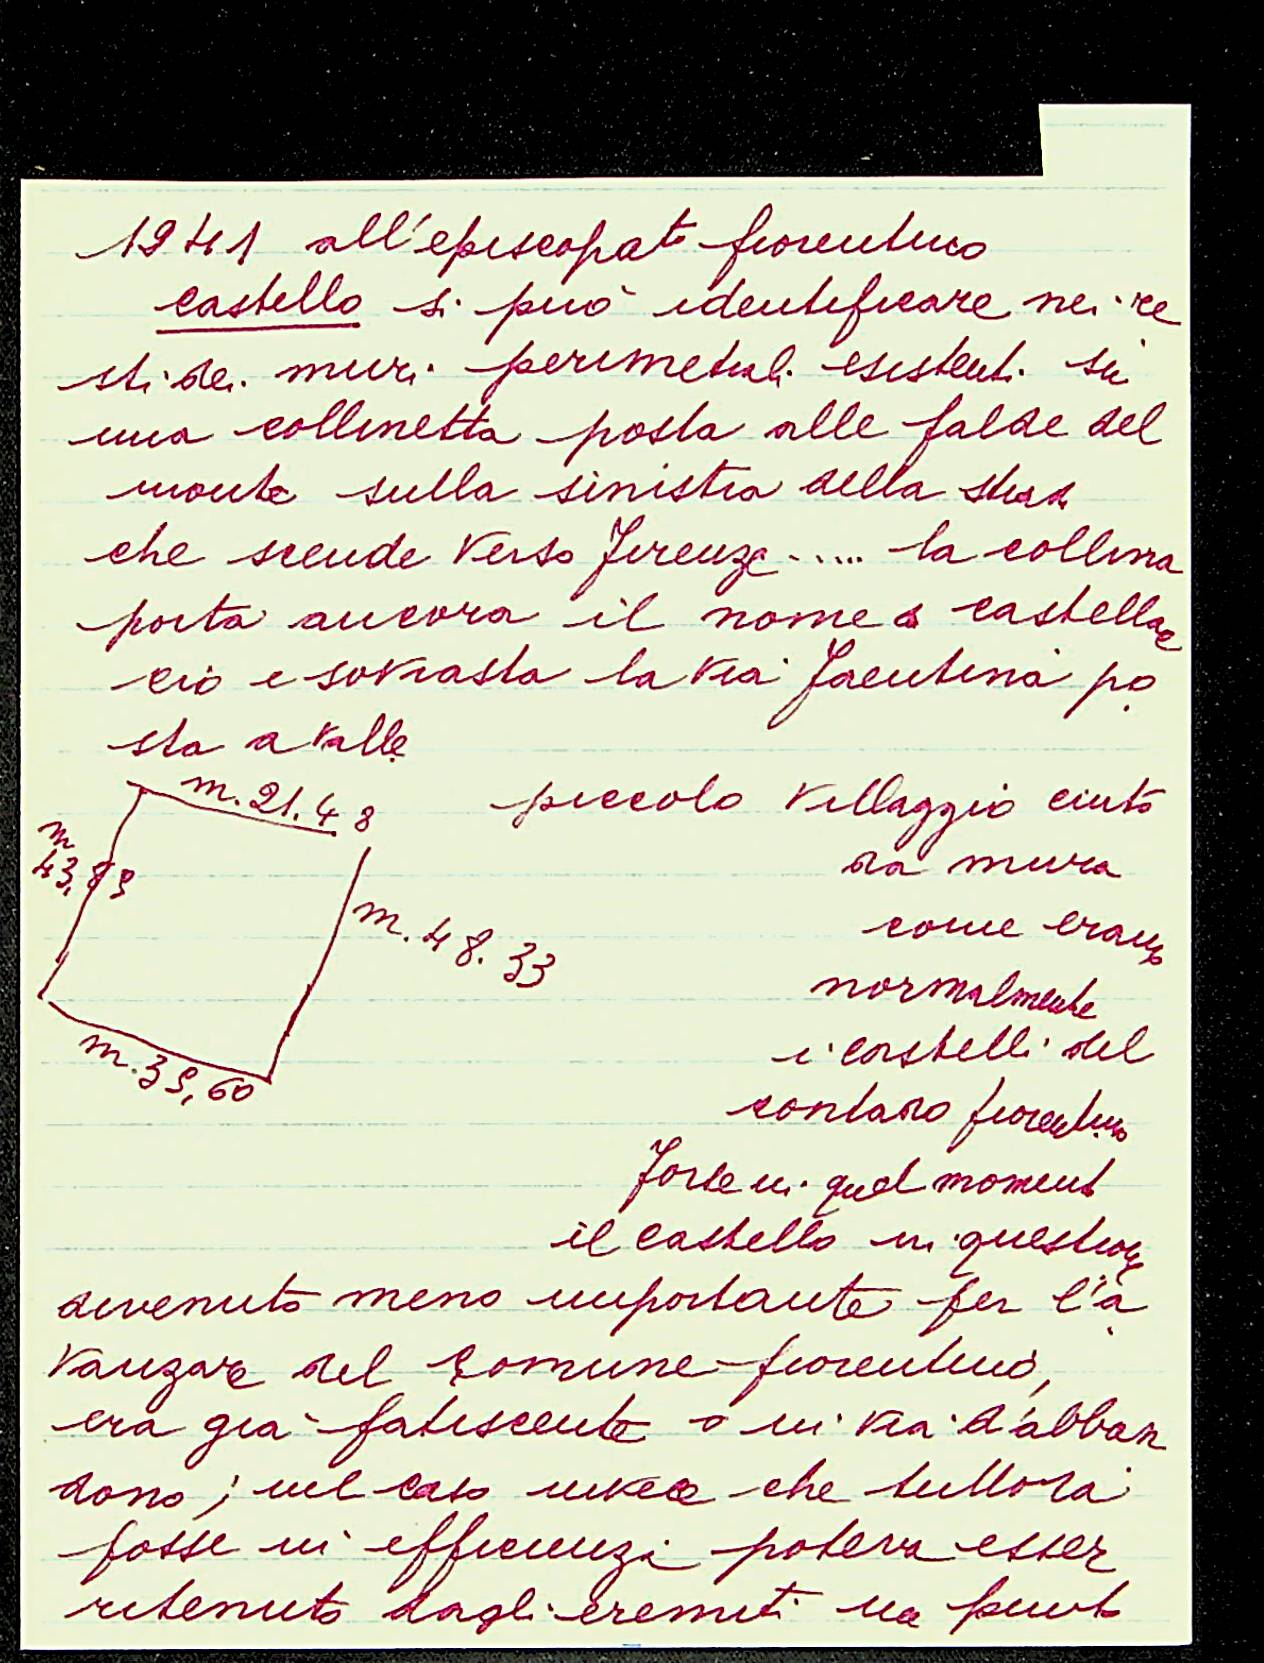 1241 all'episcopato fiorentino
castello si può identificare nei re
sti dei muri perimetrali esistenti su
una collinetta posta alle falde del
monte sulla sinistra della strada
che scende verso Firenze ..... la collina
porta ancora il nome castellac
cio e sovrasta la via Faentina po
sta a valle
m. 21.48
m 43,83
m. 48.33
m. 39,60
piccolo villaggio cinto
da mura
come erano
normalmente
i castelli del
contado fiorentino
Forse in quel momento
il castello in questione
divenuto meno importante per l'a
vanzare del Comune fiorentino,
era già fatiscente o in via d'abban
dono; nel caso invece che tuttora
fosse in efficienza poteva esser
ritenuto dagli eremiti un punto